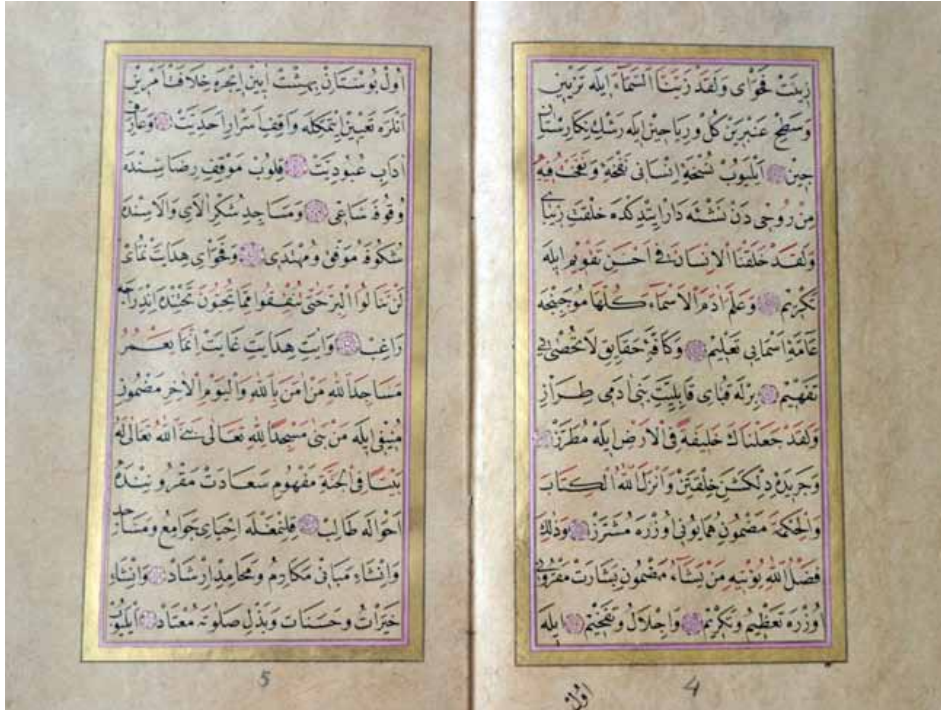 زينت فحواى وَلَقَدْ زَيَّنَّا السَّمَاءَ ايله تزيين
وسطح عنبرين كل ورياحين ايله رشك نكارستان
چين ايليوب نسخۀ انسانى نفخۀ وَنَفَخْتُ فِيهِ
مِنْ رُوحِى دن نشئه دار ايتدكده خلقت زيباى
وَلَقَدْ خَلَقْنَا الْاِنْسَانَ فِى اَحْسَنِ تَقْوِيمٍ ايله
تكريم وَعَلَّمَ اٰدَمَ الْاَسْمَاءَ كُلَّهَا موجبنجه
عامۀ اسمايى تعليم وكافۀ حقايق لا تحصى يى
تفهيم برله قباى قابليت بنى ادمى طراز
وَلَقَدْ جَعَلْنَاكَ خَلِيفَةً فِى الْاَرْضِ ايله مطرز
وجريدۀ دلكش خلقتن وَاَنْزَلَ اللهُ الْكِتَابَ
وَالْحِكْمَةَ مضمون همايونى اوزره وَذٰلِكَ
فَضْلُ اللهِ يُؤْتِيهِ مَنْ يَشَاءُ مضمون بشارت مقرونى
اوزره تعظيم وتكريم واجلال وتفخيم ايله
4
اول
اول بوستان بهشت ايين ايچره خلافت امرين
انلره تعيين ايتمكله واقف اسرار احديت وعارف
اداب عبوديت قلوب موقف رضاسنده
وقوفه ساعى ومساجد شكر الاى والاسنده
موفق ومهتدى وفحواى هدايت نماى
لَنْ تَنَالُوا الْبِرَّ حَتّٰى تُنْفِقُوا مِمَّا تُحِبُّونَ تحتنده اندراجه
راغب وايت هدايت غايت اِنَّمَا يَعْمُرُ
مَسَاجِدَ اللهِ مَنْ اٰمَنَ بِاللهِ وَالْيَوْمِ الْاٰخِرِ مضمون
منيفى ايله مَنْ بَنٰى مَسْجِدًا لِلّٰهِ تَعَالٰى بَنَى اللهُ تَعَالٰى لَهُ
بَيْتًا فِى الْجَنَّةِ مفهوم سعادت مقرونيندۀ
احواله طالب قلنمغله احياى جوامع ومساجد
وانشاء مبانى مكارم ومحامد ارشاد وانشاء
خيرات وحسنات وبذل صلوته معتاد ايليوب
5